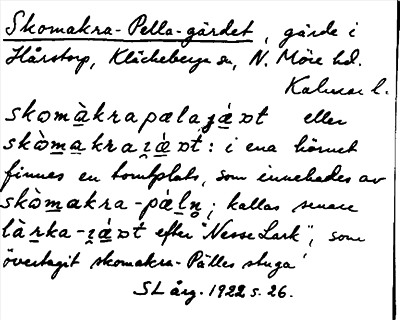 Skomakra-Pella-gärdet, gärde i
Hårstorp, Kläckeberga sn, N. Möre hd.
Kalmar l.
skomàkrapælaʒǽɒt eller
skòmakraʒǽɒt: i ena hörnet
finnes en tomtplats, som innehades av
skòmakra-pǽln; kallas senare
làrka-ʒǽɒt efter "Nesse Lark", som
övertagit skomakra-Pälles stuga'
SL årg. 1922 s. 26.